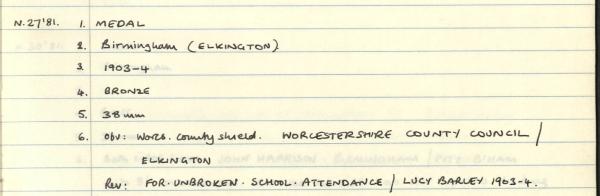 N.27'81. 1. MEDAL
2. Birmingham (ELKINGTON)
3. 1903-4
4. BRONZE
5. 38mm
6. Obv: Worcs. county shield. WORCESTERSHIRE COUNTY COUNCIL /
ELKINGTON
Rev: FOR·UNBROKEN·SCHOOL·ATTENDANCE / LUCY BARLEY 1903-4.